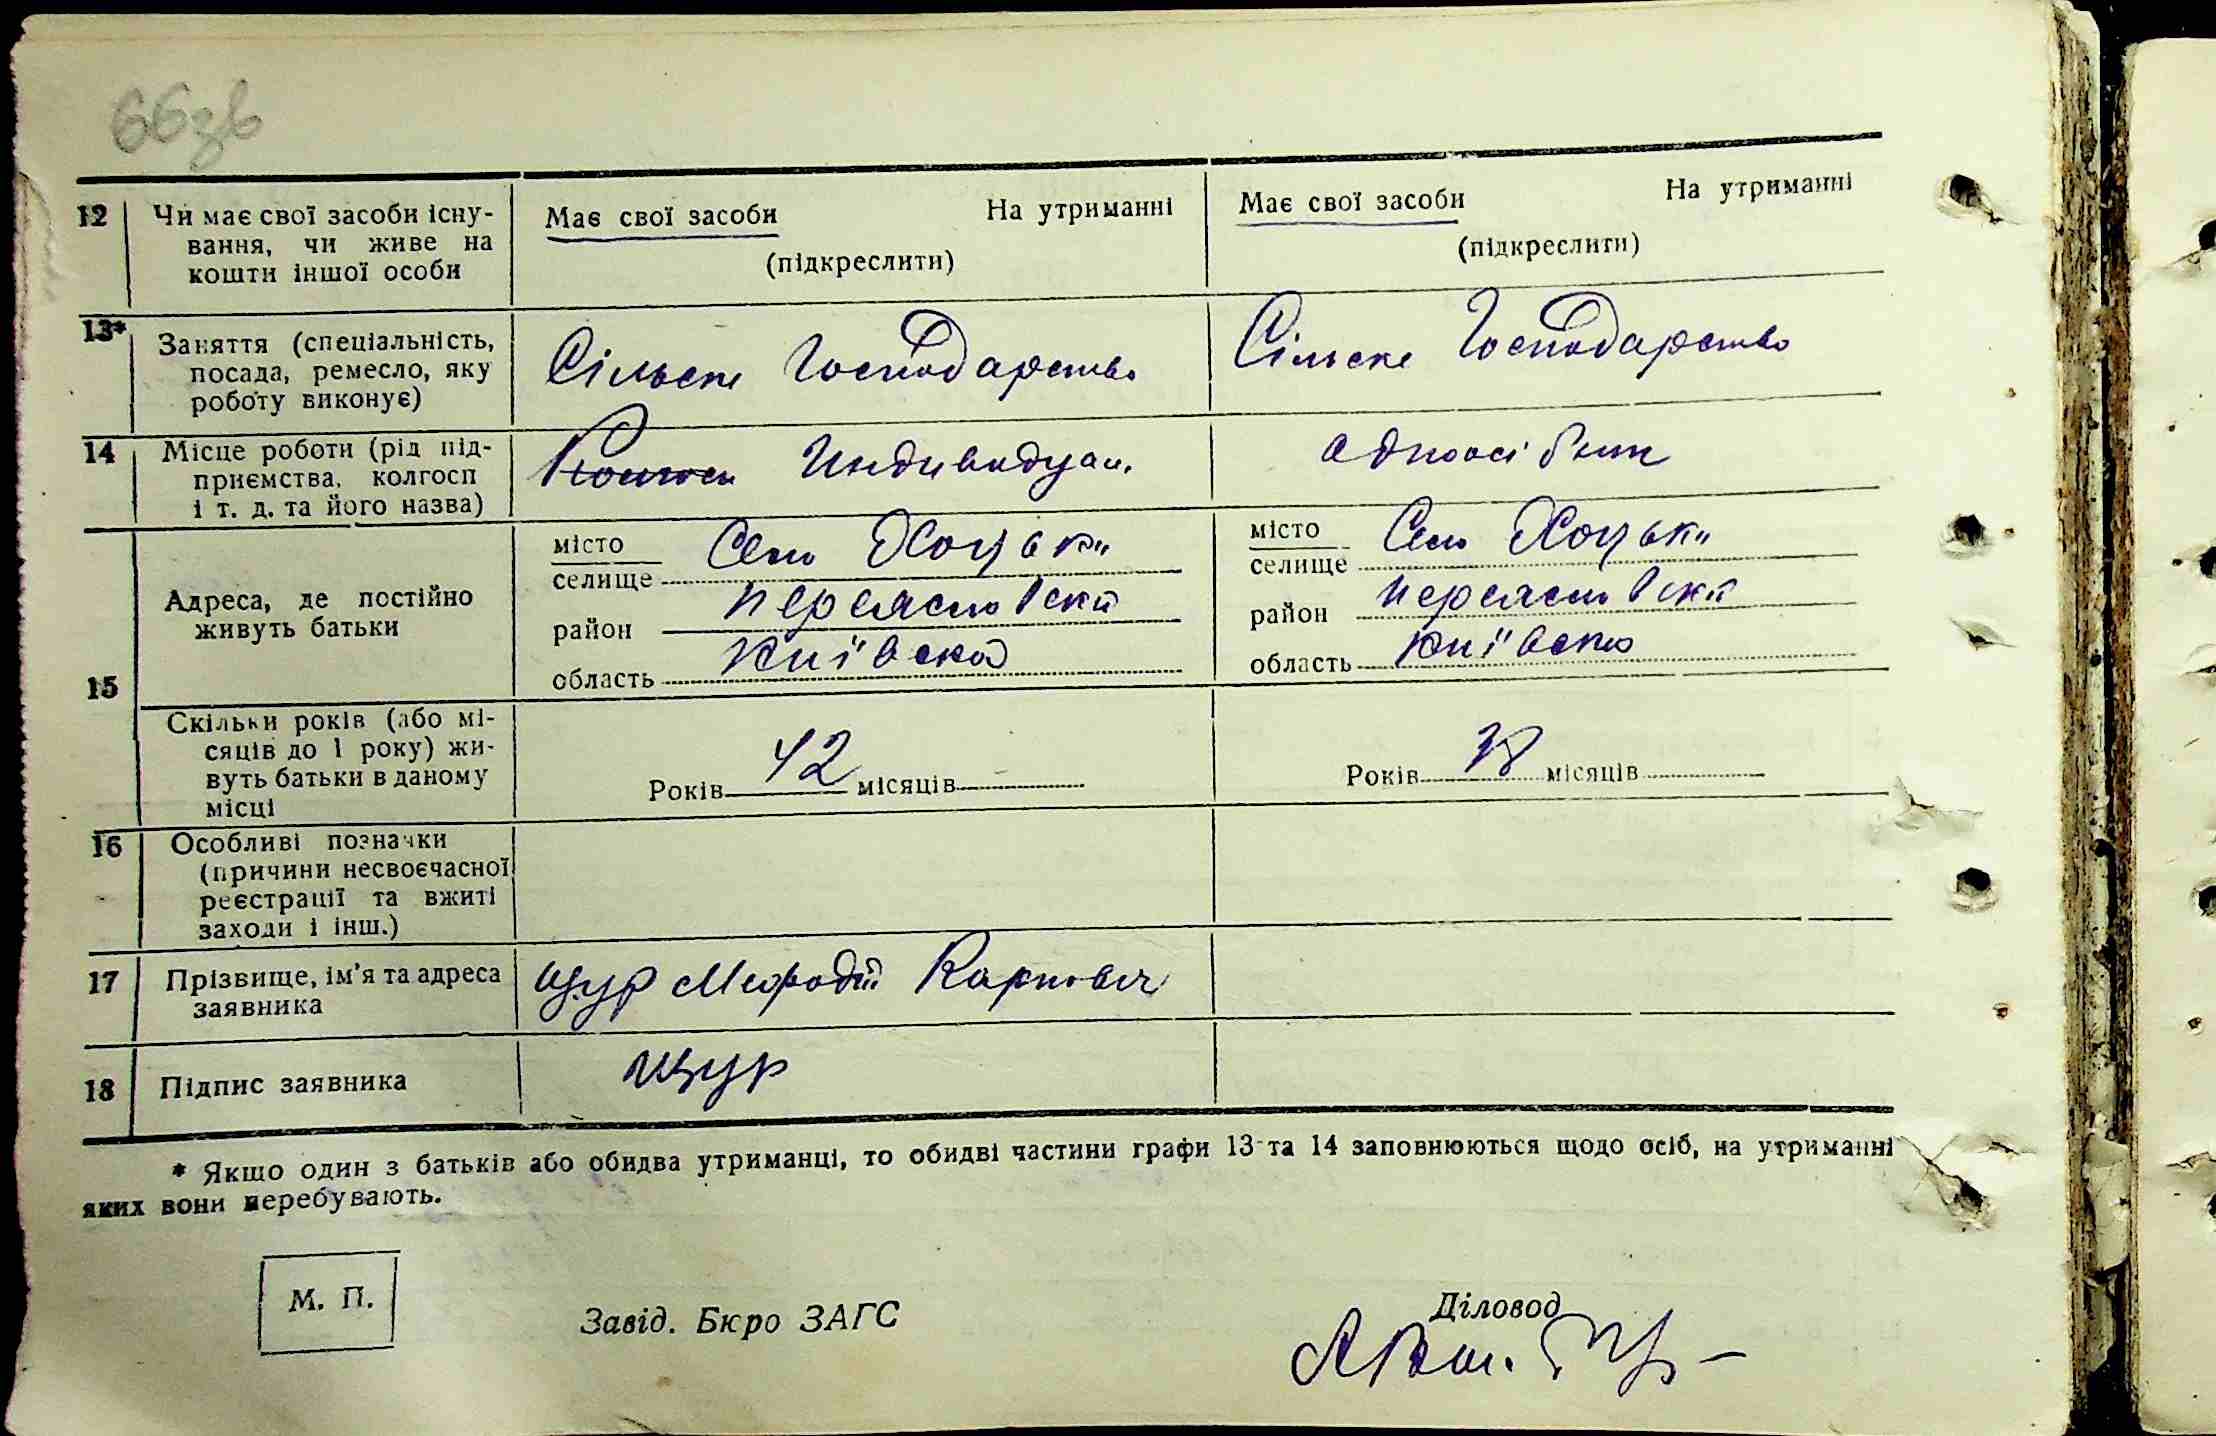 66зв
12 Чи має свої засоби існу- Має свої засоби На утриманні Має свої засоби На утриманні
вання, чи живе на (підкреслити) (підкреслити)
кошти іншої особи
13* Заняття (спеціальність, Сільске Господарство Сільске Господарство
посада, ремесло, яку
роботу виконує)
14 Місце роботи (рід під- Индивидуал. одноосібник
приємства, колгосп
і т. д. та його назва)
15 Адреса, де постійно
живуть батьки
місто Село Хоцьки місто Село Хоцьки
селище селище
район Переяславскій район Переяславскій
область Київска область Київска
Скільки років (або мі-
сяців до 1 року) жи-
вуть батьки в даному
місці
Років 42 місяців Років 38 місяців
16 Особливі позначки
(причини несвоєчасної
реєстрації та вжиті
заходи і інш.)
17 Прізвище, ім'я та адреса Щур Мефодій Карпович
заявника
18 Підпис заявника Щур
* Якщо один з батьків або обидва утриманці, то обидві частини графи 13 та 14 заповнюються щодо осіб, на утриманні
яких вони перебувають.
М. П.
Завід. Бюро ЗАГС
Діловод